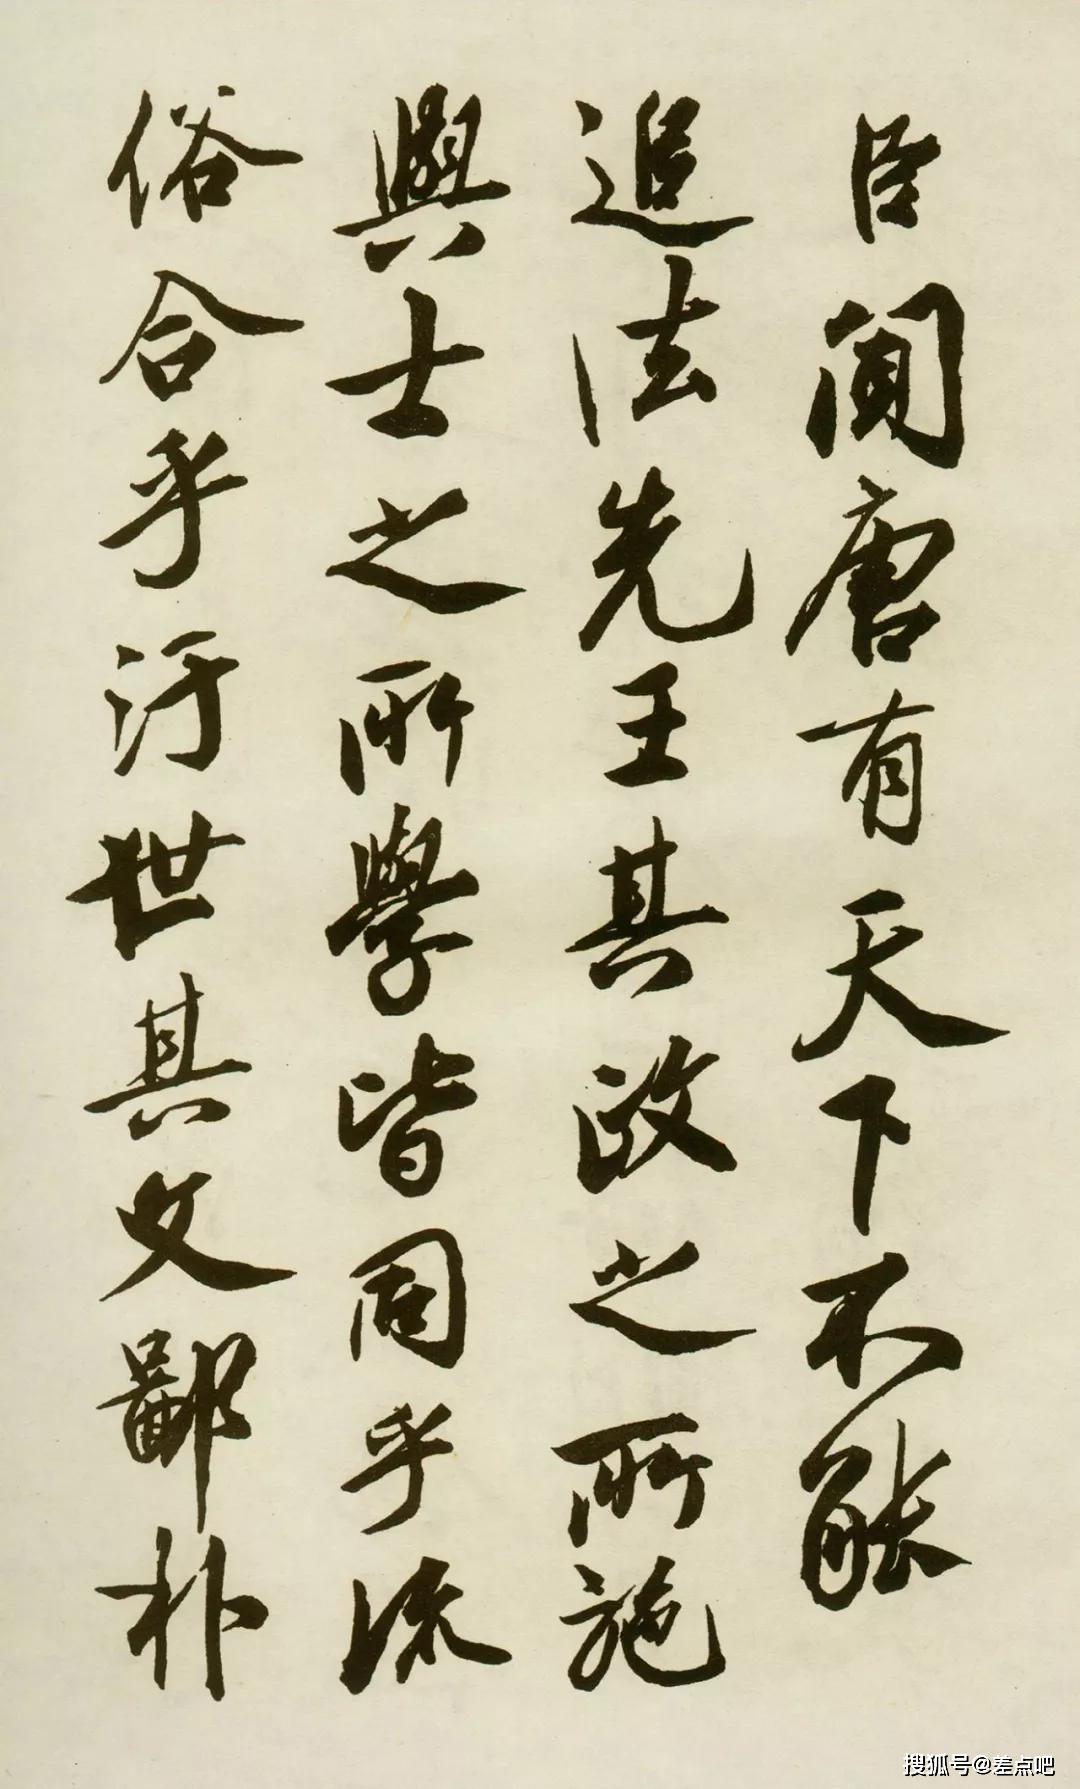 臣聞唐有天下不能
追法先王其政之所施
與士之所學皆同乎流
俗合乎汙世其文鄙朴
搜狐号@差点吧